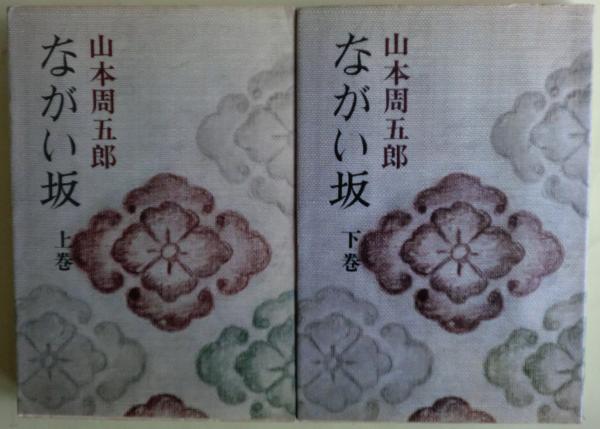 山本周五郎
ながい坂
上巻
山本周五郎
ながい坂
下巻